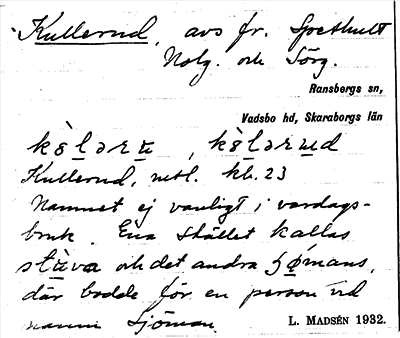 Kullerud, avs fr. Spethult
Nolg. och Sörg.
Ransbergs sn,
Vadsbo hd, Skaraborgs län
Kullerud, mtl. kb. 23
Namnet ej vanligt i vardags-
bruk. Ena stället kallas
stũva och det andra
där bodde för en person vid
namn Sjöman.
L. MADSÉN 1932.